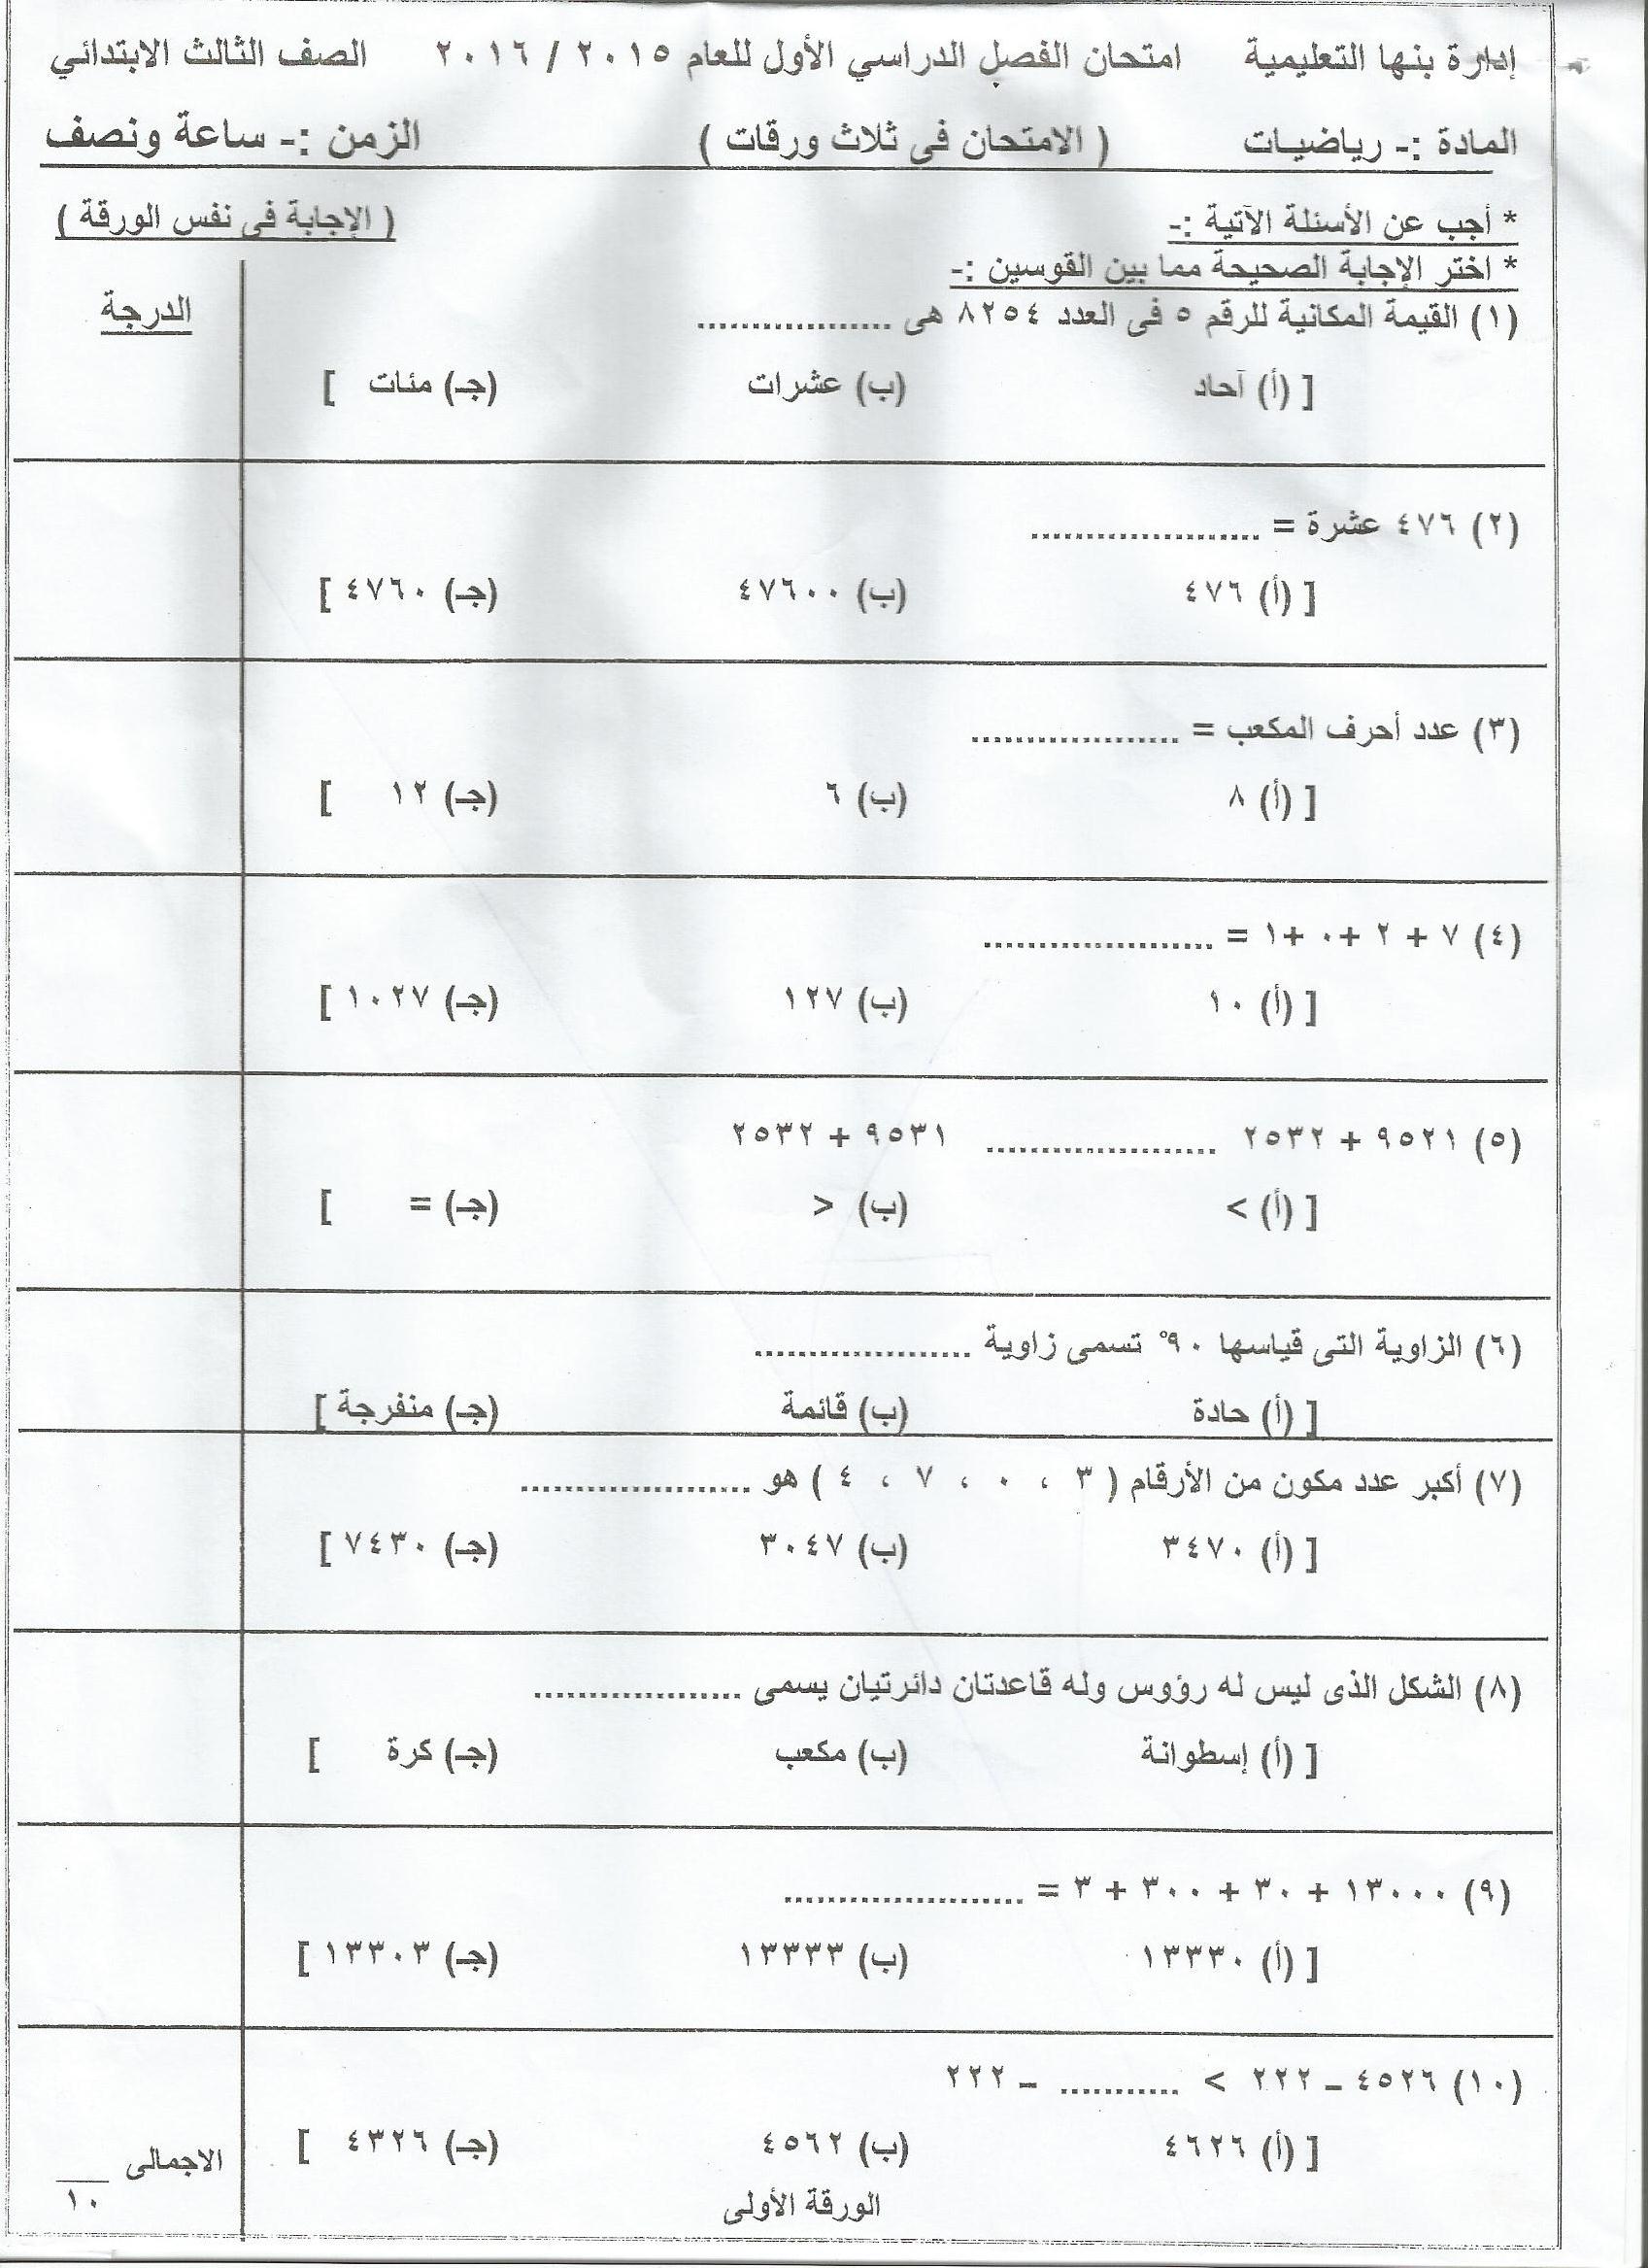 إدارة بنها التعليمية امتحان الفصل الدراسي الأول للعام ٢٠١٥ / ٢٠١٦ الصف الثالث الابتدائي
المادة :- رياضيات ( الامتحان فى ثلاث ورقات ) الزمن :- ساعة ونصف
* أجب عن الأسئلة الآتية :- ( الإجابة فى نفس الورقة )
* اختر الإجابة الصحيحة مما بين القوسين :-
الدرجة
(١) القيمة المكانية للرقم ٥ فى العدد ٨٢٥٤ هى ..................
[ (أ) آحاد (ب) عشرات (جـ) مئات ]
(٢) ٤٧٦ عشرة = .....................
[ (أ) ٤٧٦ (ب) ٤٧٦٠٠ (جـ) ٤٧٦٠ ]
(٣) عدد أحرف المكعب = ...................
[ (أ) ٨ (ب) ٦ (جـ) ١٢ ]
(٤) ٧ + ٢ +٠ +١ = .....................
[ (أ) ١٠ (ب) ١٢٧ (جـ) ١٠٢٧ ]
(٥) ٩٥٢١ + ٢٥٣٢ ..................... ٩٥٣١ + ٢٥٣٢
[ (أ) > (ب) < (جـ) = ]
(٦) الزاوية التى قياسها ٩٠° تسمى زاوية ....................
[ (أ) حادة (ب) قائمة (جـ) منفرجة ]
(٧) أكبر عدد مكون من الأرقام ( ٣ ، ٠ ، ٧ ، ٤ ) هو .....................
[ (أ) ٣٤٧٠ (ب) ٣٠٤٧ (جـ) ٧٤٣٠ ]
(٨) الشكل الذى ليس له رؤوس وله قاعدتان دائرتيان يسمى ...................
[ (أ) إسطوانة (ب) مكعب (جـ) كرة ]
(٩) ١٣٠٠٠ + ٣٠ + ٣٠٠ + ٣ = ......................
[ (أ) ١٣٣٣٠ (ب) ١٣٣٣٣ (جـ) ١٣٣٠٣ ]
(١٠) ٤٥٢٦ – ٢٢٢ > ........... – ٢٢٢
[ (أ) ٤٦٢٦ (ب) ٤٥٦٢ (جـ) ٤٣٢٦ ]
الاجمالى ___
١٠
الورقة الأولى